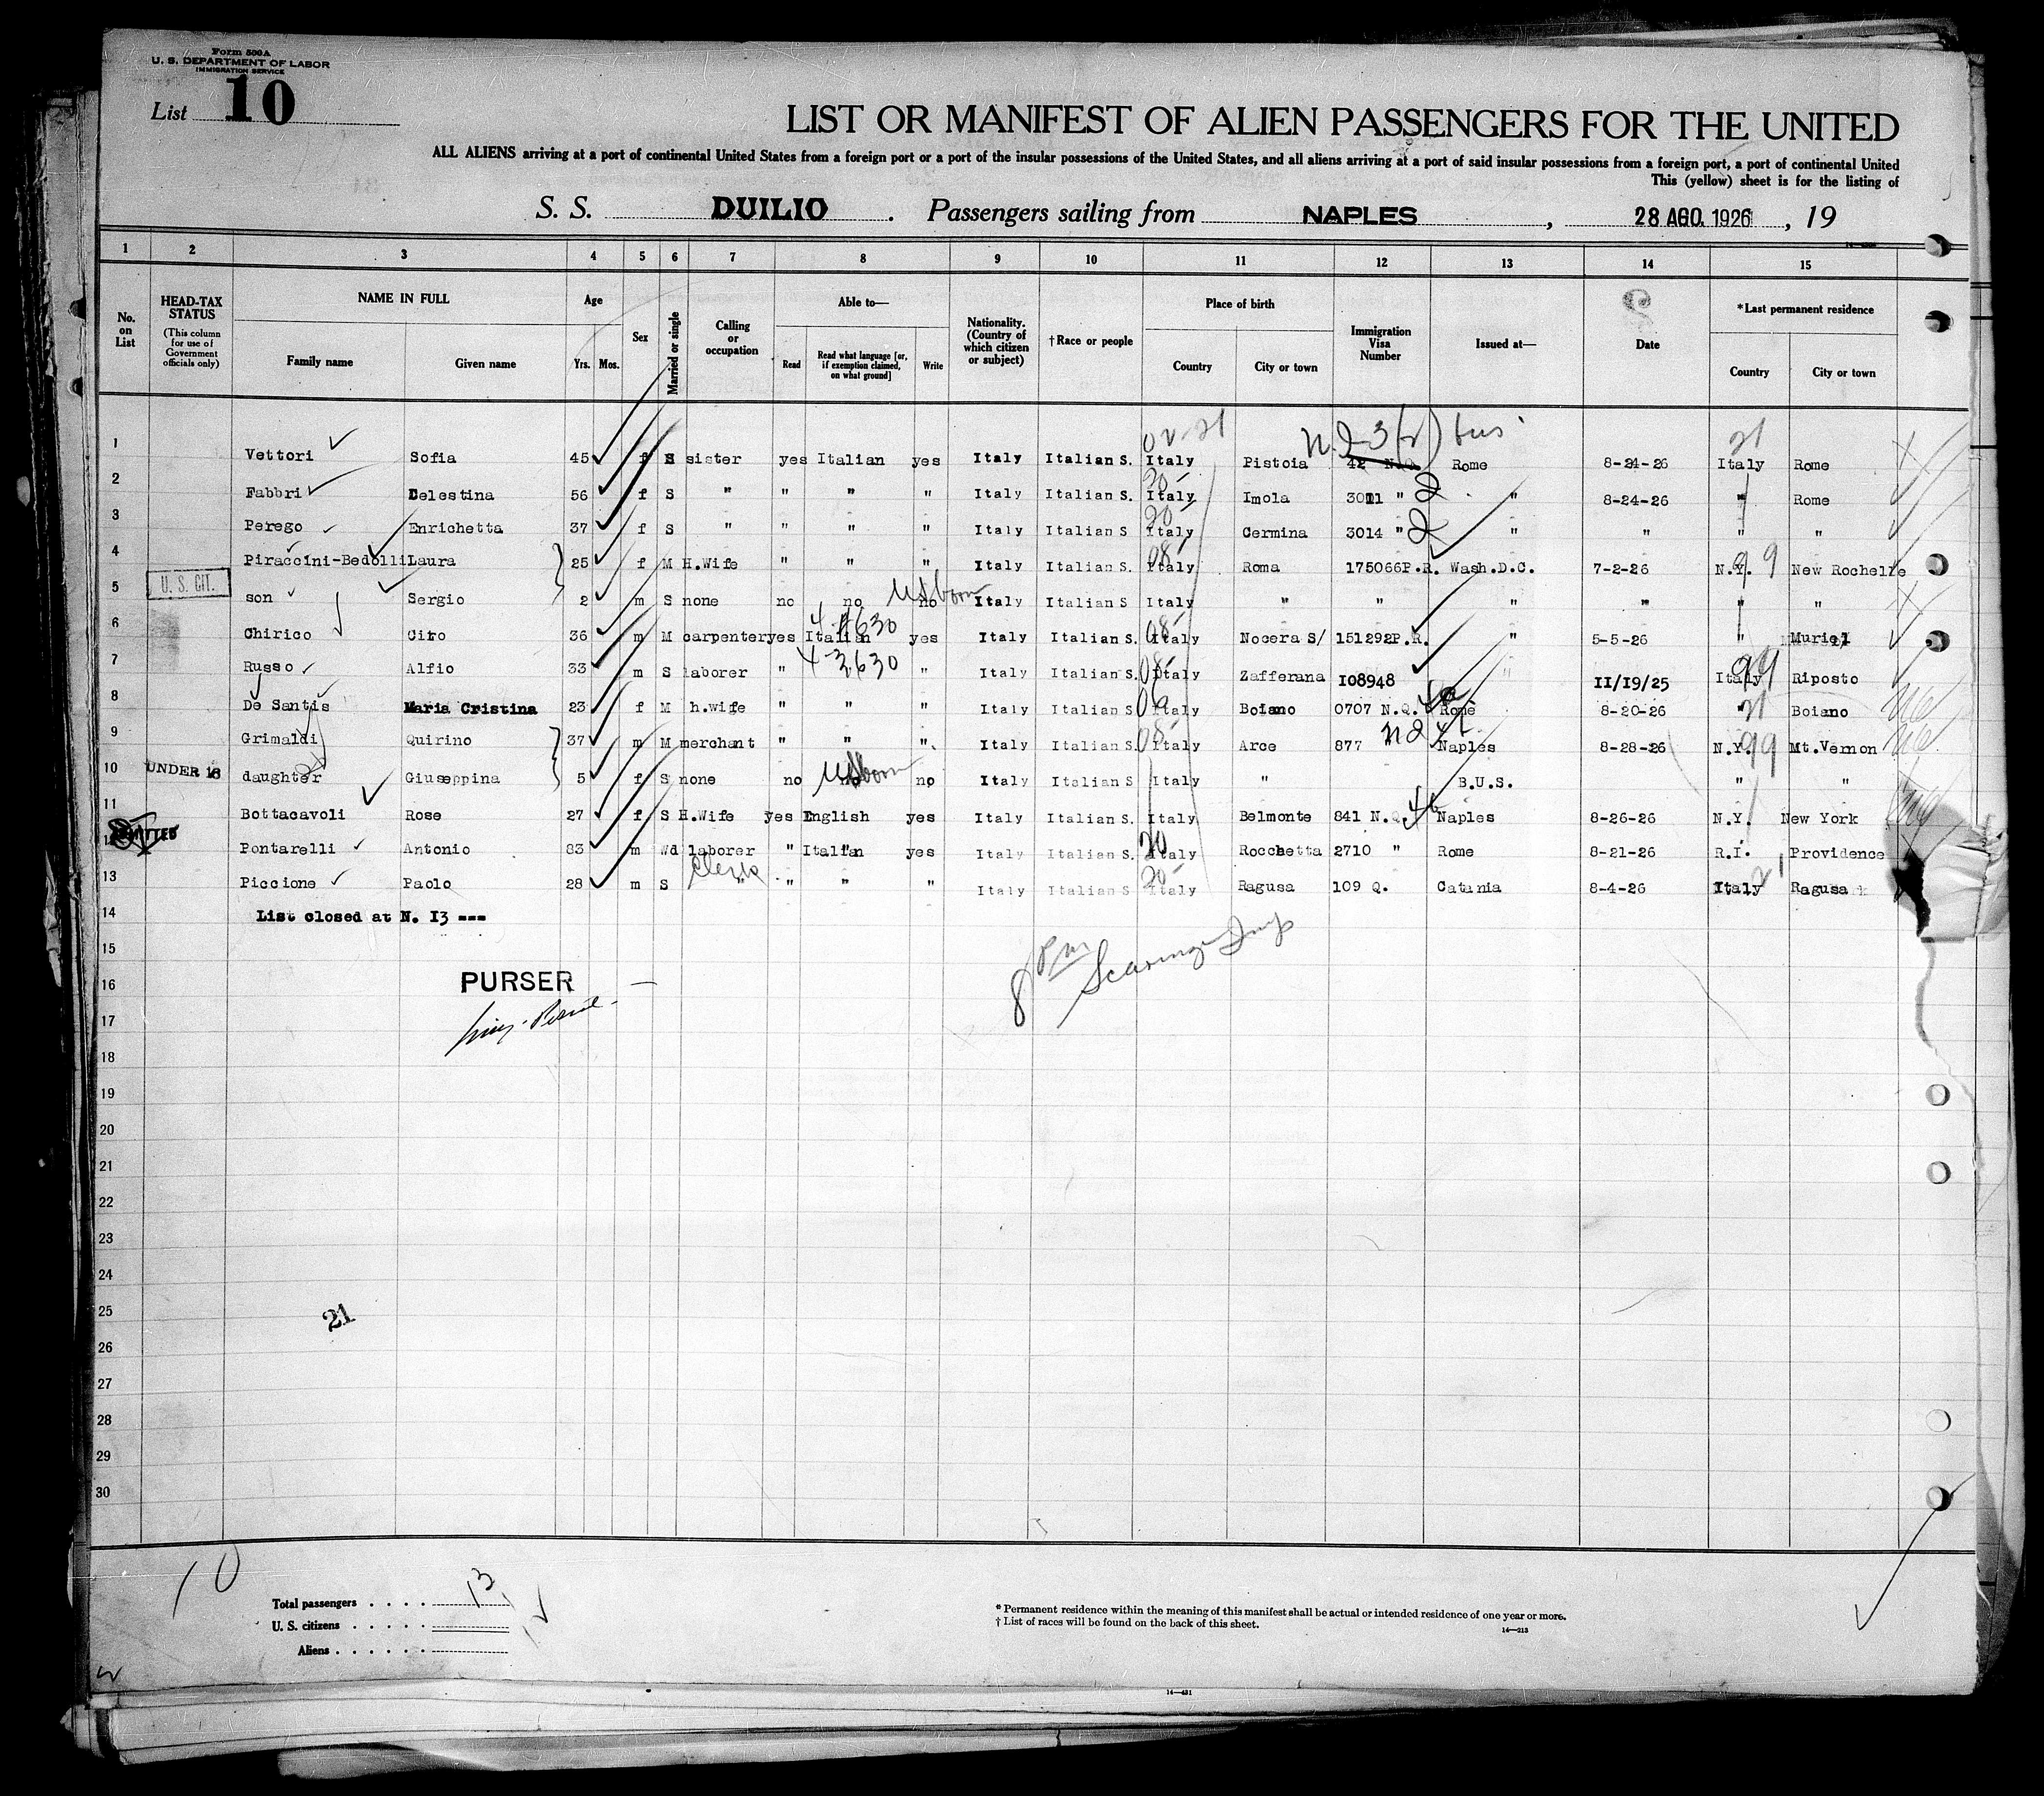 Form 500A
U. S. DEPARTMENT OF LABOR
IMMIGRATION SERVICE
List 10
LIST OR MANIFEST OF ALIEN PASSENGERS FOR THE UNITED
ALL ALIENS arriving at a port of continental United States from a foreign port or a port of the insular possessions of the United States, and all aliens arriving at a port of said insular possessions from a foreign port, a port of continental United
This (yellow) sheet is for the listing of
S. S. DUILIO. Passengers sailing from NAPLES, 28 AGO. 1926, 19
1 2 3 4 5 6 7 8 9 10 11 12 13 14 15
No. on List
HEAD-TAX STATUS
(This column for use of Government officials only)
NAME IN FULL
Family name Given name
Age
Yrs. Mos.
Sex
Married or single
Calling or occupation
Able to—
Read Read what language [or, if exemption claimed, on what ground] Write
Nationality. (Country of which citizen or subject)
†Race or people
Place of birth
Country City or town
Immigration Visa Number
Issued at—
Date
*Last permanent residence
Country City or town
1 Vettori Sofia 45 f S sister yes Italian yes Italy Italian S. Italy Pistoia 42 N.Q. Rome 8-24-26 Italy Rome
2 Fabbri Celestina 56 f S " " " " Italy Italian S. Italy Imola 3011 " " 8-24-26 " Rome
3 Perego Enrichetta 37 f S " " " " Italy Italian S. Italy Cermina 3014 " " " " "
4 Piraccini-Bedolli Laura 25 f M H.Wife " " " Italy Italian S. Italy Roma 175066P.R. Wash.D.C. 7-2-26 N.Y. New Rochelle
U. S. CIT.
5 son Sergio 2 m S none no no no Italy Italian S Italy " " " " " "
US born
6 Chirico Ciro 36 m M carpenter yes Italian yes Italy Italian S. Italy Nocera S/ 151292P.R. " 5-5-26 " Muriel
7 Russo Alfio 33 m S laborer " " Italy Italian S. Italy Zafferana 108948 " 11/19/25 Italy Riposto
8 De Santis Maria Cristina 23 f M h.wife " " " Italy Italian S. Italy Boiano 0707 N.Q. Rome 8-20-26 " Boiano
9 Grimaldi Quirino 37 m M merchant " " " Italy Italian S. Italy Arce 877 Naples 8-28-26 N.Y. Mt.Vernon
10 UNDER 16 daughter Giuseppina 5 f S none no no no Italy Italian S Italy " B.U.S. " "
US born
11 Bottacavoli Rose 27 f S H.Wife yes English yes Italy Italian S. Italy Belmonte 841 N.Q. Naples 8-26-26 N.Y. New York
ADMITTED
12 Pontarelli Antonio 83 m Wd laborer " Italian yes Italy Italian S. Italy Rocchetta 2710 " Rome 8-21-26 R.I. Providence
13 Piccione Paolo 28 m S " " " " Italy Italian S Italy Ragusa 109 Q. Catania 8-4-26 Italy Ragusa
Clerk
14 List closed at N. 13 ---
15
16 PURSER
17
18
19
20
21
22
23
24
25 21
26
27
28
29
30
10
Total passengers . . . . 13
U. S. citizens . . . . .
Aliens . . . . . .
* Permanent residence within the meaning of this manifest shall be actual or intended residence of one year or more.
† List of races will be found on the back of this sheet.
14—213
14—431